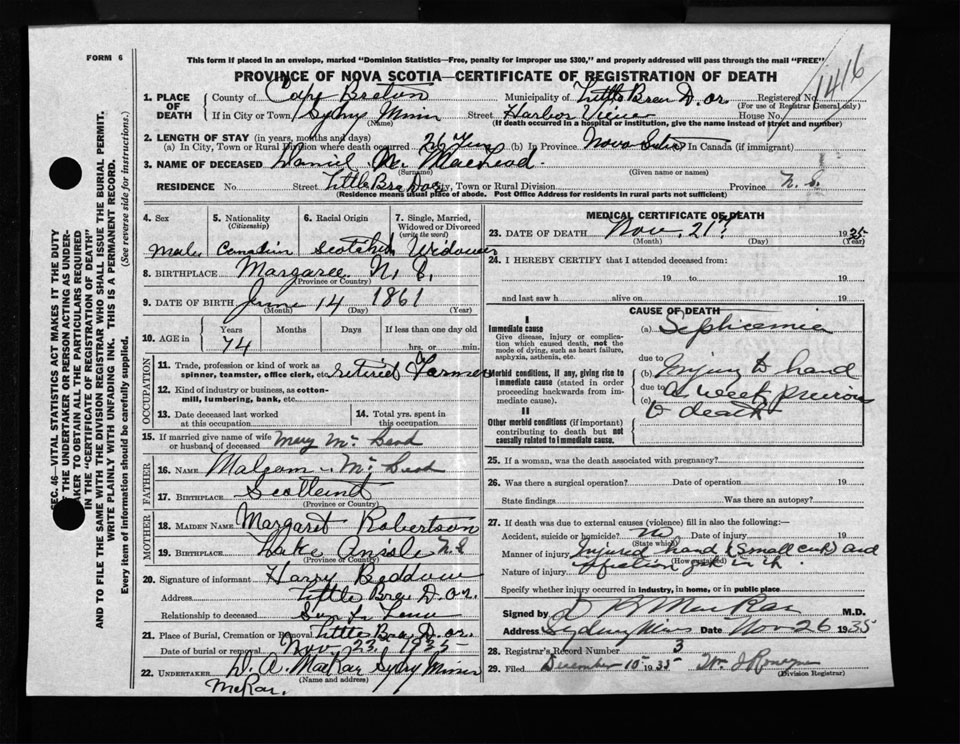 FORM 6
This form if placed in an envelope, marked "Dominion Statistics—Free, penalty for improper use $300," and properly addressed will pass through the mail "FREE"
PROVINCE OF NOVA SCOTIA—CERTIFICATE OF REGISTRATION OF DEATH
1416
1. PLACE OF DEATH County of Cape Breton Municipality of Little Bras D. or. Registered No.
(For use of Registrar General only)
If in City or Town Sydney Mines Street Harbor View House No.
(Name) (If death occurred in a hospital or institution, give the name instead of street and number)
2. LENGTH OF STAY (in years, months and days)
(a) In City, Town or Rural Division where death occurred 26 Yrs (b) In Province Nova Scotia In Canada (if immigrant)
3. NAME OF DECEASED Daniel Mc MacLeod.
(Surname) (Given name or names)
RESIDENCE No. Street Little Bra Dor City, Town or Rural Division Province N. S.
(Residence means usual place of abode. Post Office Address for residents in rural parts not sufficient)
4. Sex 5. Nationality (Citizenship) 6. Racial Origin 7. Single, Married, Widowed or Divorced (write the word)
Male Canadian Scotch Widower
8. BIRTHPLACE Margaree N. S.
(Province or Country)
9. DATE OF BIRTH June 14 1861
(Month) (Day) (Year)
10. AGE in Years Months Days If less than one day old
74 hrs. or min.
OCCUPATION
11. Trade, profession or kind of work as spinner, teamster, office clerk, etc. Retired Farmer
12. Kind of industry or business, as cotton-mill, lumbering, bank, etc.
13. Date deceased last worked at this occupation
14. Total yrs. spent in this occupation
15. If married give name of wife or husband of deceased Mary Mc Leod
FATHER
16. NAME Malcom Mc Leod
17. BIRTHPLACE Scotland
(Province or Country)
MOTHER
18. MAIDEN NAME Margaret Robertson
19. BIRTHPLACE Lake Ainslie N. S
(Province or Country)
20. Signature of informant Harry
Address Little Bra D. Or.
Relationship to deceased Son In Law
21. Place of Burial, Cremation or Removal Little Bra D. or.
Date of burial or removal Nov. 23. 1935
22. UNDERTAKER D. A. MacRae Sydney Mines
(Name and address)
McRae.
MEDICAL CERTIFICATE OF DEATH
23. DATE OF DEATH Nov. 21st 1935
(Month) (Day) (Year)
24. I HEREBY CERTIFY that I attended deceased from:
19 to 19
and last saw h alive on 19
CAUSE OF DEATH
I
Immediate cause
Give disease, injury or complication which caused death, not the mode of dying, such as heart failure, asphyxia, asthenia, etc.
(a) Septicemia
due to
Morbid conditions, if any, giving rise to immediate cause (stated in order proceeding backwards from immediate cause).
(b) Injury to hand
due to
(c) a week previous
to death
II
Other morbid conditions (if important) contributing to death but not causally related to immediate cause.
25. If a woman, was the death associated with pregnancy?
26. Was there a surgical operation? Date of operation 19
State findings Was there an autopsy?
27. If death was due to external causes (violence) fill in also the following:—
Accident, suicide or homicide? no Date of injury 19
(State which)
Manner of injury Injured hand (small cut) and
(How sustained)
Nature of injury infection got in it.
Specify whether injury occurred in industry, in home, or in public place
Signed by MacRae M.D.
Address Sydney Mines Date Nov 26 1935
28. Registrar's Record Number 3
29. Filed December 10 1935
(Division Registrar)
SEC. 46—VITAL STATISTICS ACT MAKES IT THE DUTY
OF THE UNDERTAKER OR PERSON ACTING AS UNDER-
TAKER TO OBTAIN ALL THE PARTICULARS REQUIRED
IN THE "CERTIFICATE OF REGISTRATION OF DEATH"
AND TO FILE THE SAME WITH THE DIVISION REGISTRAR WHO SHALL ISSUE THE BURIAL PERMIT.
WRITE PLAINLY WITH UNFADING INK. THIS IS A PERMANENT RECORD.
Every item of information should be carefully supplied. (See reverse side for instructions.)